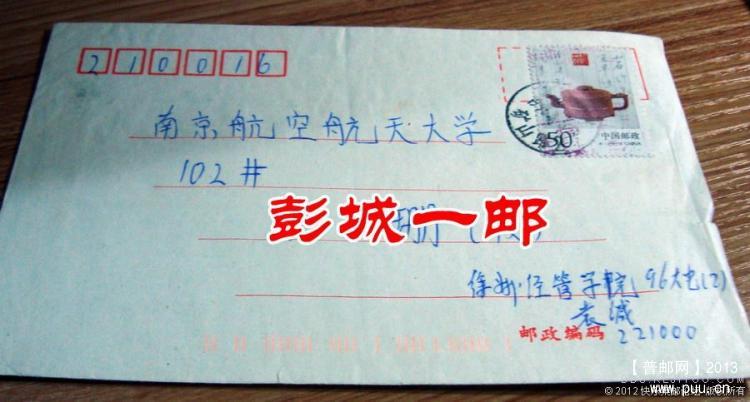 210016
南京航空航天大学
102#
彭城一邮
徐州·经管学院 96大电(2)
袁诚
邮政编码 221000
50
中国邮政
CHINA
【普邮网】2013
www.puu.cn